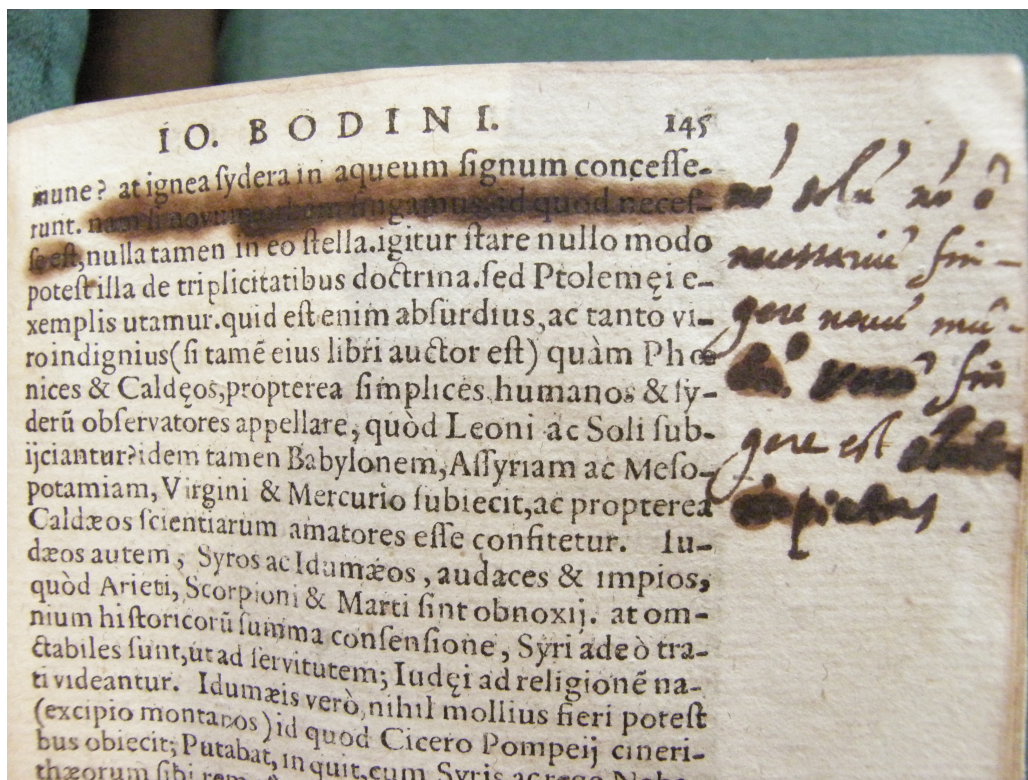 IO. BODINI. 145
mune? at ignea ſydera in aqueum ſignum conceſſe-
runt. nam ſi novum orbem fingamus id quod neceſ-
ſe eſt, nulla tamen in eo ſtella. igitur ſtare nullo modo
poteſt illa de triplicitatibus doctrina. ſed Ptolemęi e-
xemplis utamur. quid eſt enim abſurdius, ac tanto vi-
ro indignius (ſi tamē eius libri auctor eſt) quàm Phœ
nices & Caldęos, propterea ſimplices, humanos & ſy-
derū obſervatores appellare, quòd Leoni ac Soli ſub-
ijciantur? idem tamen Babylonem, Aſſyriam ac Meſo-
potamiam, Virgini & Mercurio ſubiecit, ac propterea
Caldæos ſcientiarum amatores eſſe confitetur. Iu-
dæos autem, Syros ac Idumæos, audaces & impios,
quòd Arieti, Scorpioni & Marti ſint obnoxij. at om-
nium hiſtoricorū ſumma conſenſione, Syri adeò tra-
ctabiles ſunt, ut ad ſervitutem; Iudęi ad religionē na-
ti videantur. Idumæis verò, nihil mollius fieri poteſt
(excipio montanos) id quod Cicero Pompeij cineri-
bus obiecit; Putabat, inquit, cum Syris ac rege
thæorum ſibi rem
nō solū nō ē
necessariū fin-
gere novū mū-
fin
gere est